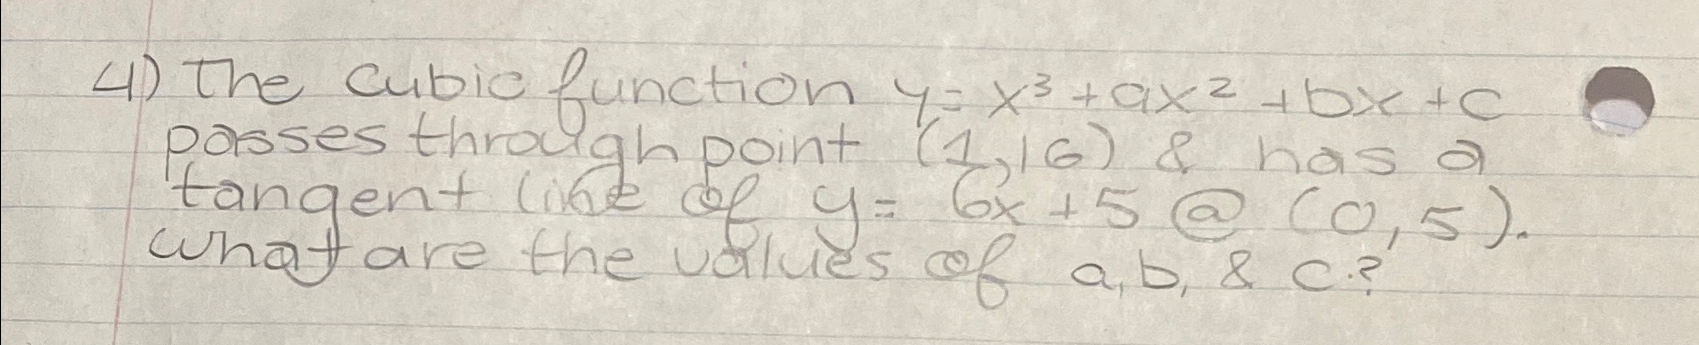 4) The cubic function y = x³ + ax² + bx + c
passes through point (1,16) & has a
tangent line of y = 6x + 5 @ (0,5).
What are the values of a, b, & c?